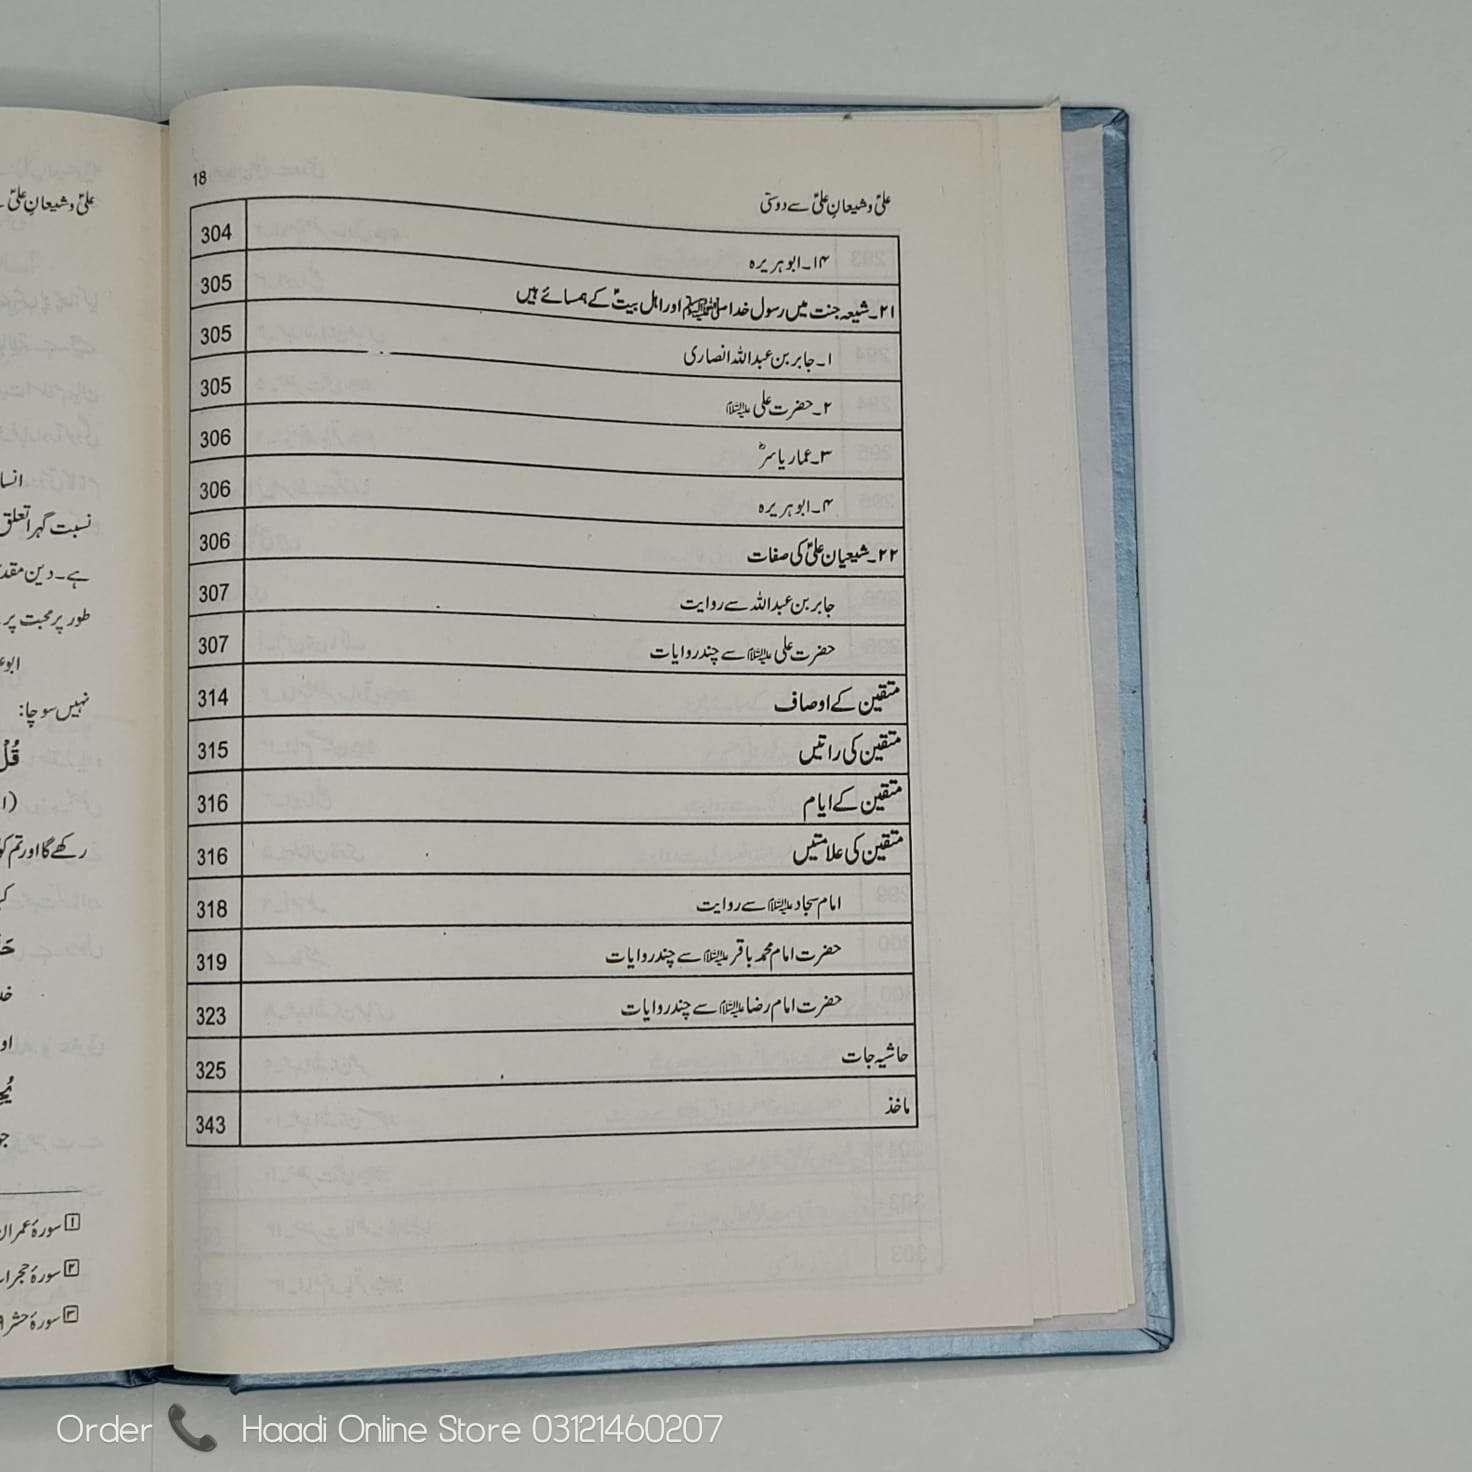 18
علیؑ و شیعانِ علیؑ سے دوستی
۱۴۔ ابوہریرہ 304
۲۱۔ شیعہ جنت میں رسول خدا ﷺ اور اہل بیتؑ کے ہمسائے ہیں 305
۱۔ جابر بن عبداللہ انصاری 305
۲۔ حضرت علی علیہ السلام 305
۳۔ عمار یاسرؓ 306
۴۔ ابوہریرہ 306
۲۲۔ شیعیان علیؑ کی صفات 306
جابر بن عبداللہ سے روایت 307
حضرت علی علیہ السلام سے چند روایات 307
متقین کے اوصاف 314
متقین کی راتیں 315
متقین کے ایام 316
متقین کی علامتیں 316
امام سجاد علیہ السلام سے روایت 318
حضرت امام محمد باقر علیہ السلام سے چند روایات 319
حضرت امام رضا علیہ السلام سے چند روایات 323
حاشیہ جات 325
ماخذ 343
علیؑ و شیعانِ علیؑ
نسبت گہرا تعلق
ہے۔ دین
طور پر محبت پر
نہیں سوچا:
قُلْ
رکھے گا اور تم
۱ سورۂ عمران
۲ سورۂ
۳ سورۂ حشر
Order Haadi Online Store 03121460207